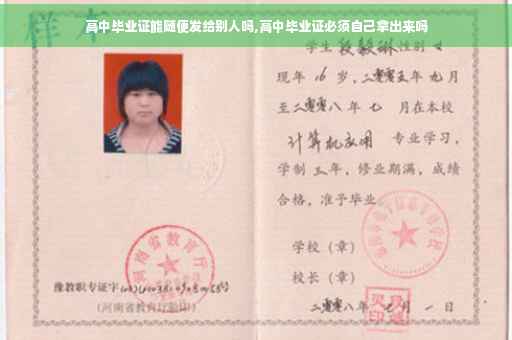 高中毕业证能随便发给别人吗,高中毕业证必须自己拿出来吗
样本
学生 段毅琳 性别 女
现年 16 岁,二零零五年 九月
至二零零八年 七 月在本校
计算机应用 专业学习,
学制 三年,修业期满,成绩
合格,准予毕业
学校(章)
校长(章)
二零零八年 月 一 日
河南省教育厅
豫教职专证字
(河南省教育厅验印)